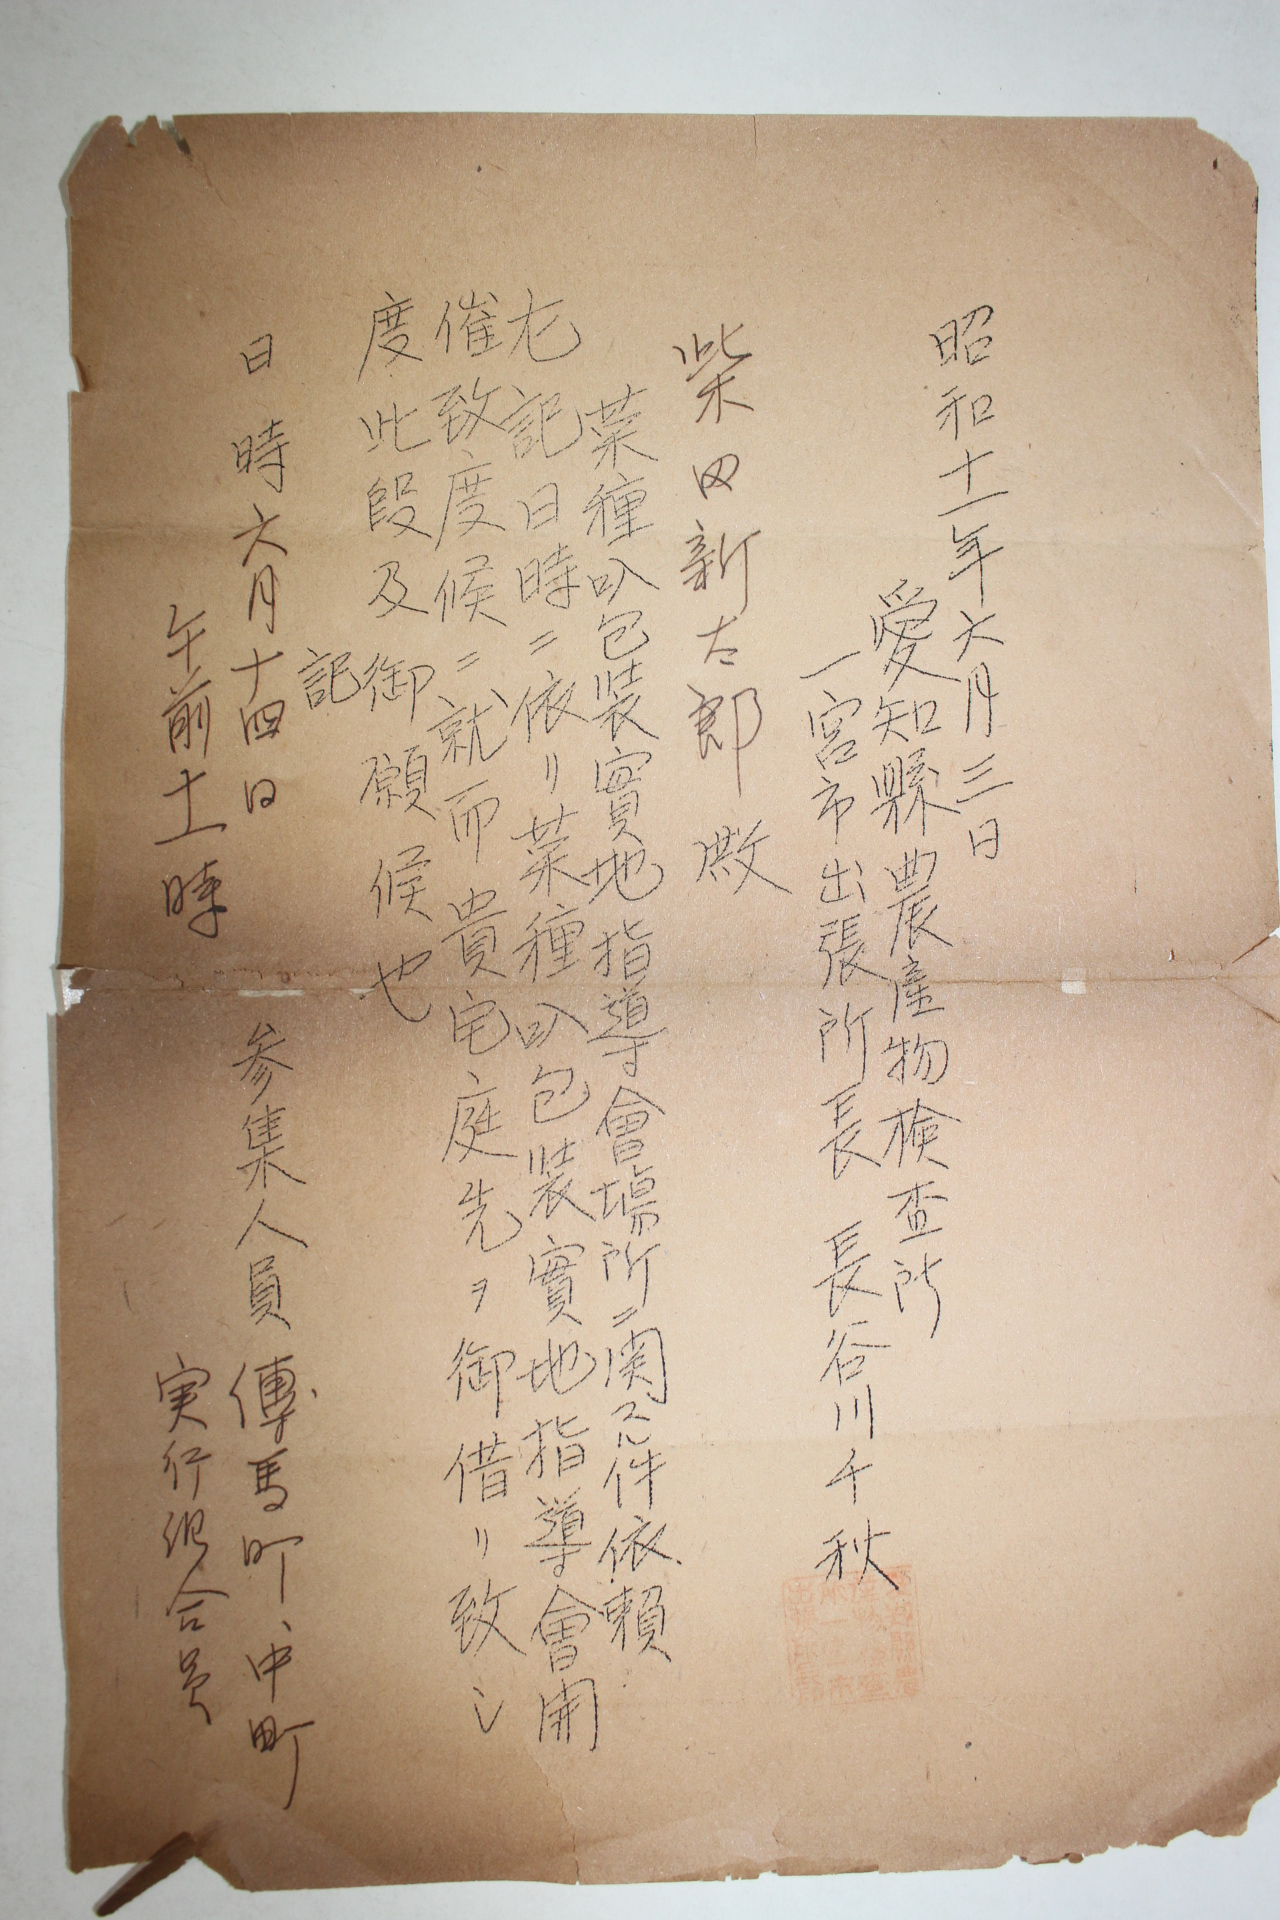 昭和十一年六月三日
愛知縣農産物檢查所
一宮市出張所長 長谷川千秋
柴田新太郎 殿
菜種叺包装實地指導會場所ニ関スル件依頼
左記日時ニ依リ菜種叺包装實地指導會開
催致度候ニ就而貴宅庭先ヲ御借リ致シ
度此段及御願候也
記
日時六月十四日
午前十一時
参集人員 傳馬町、中町
実行組合員